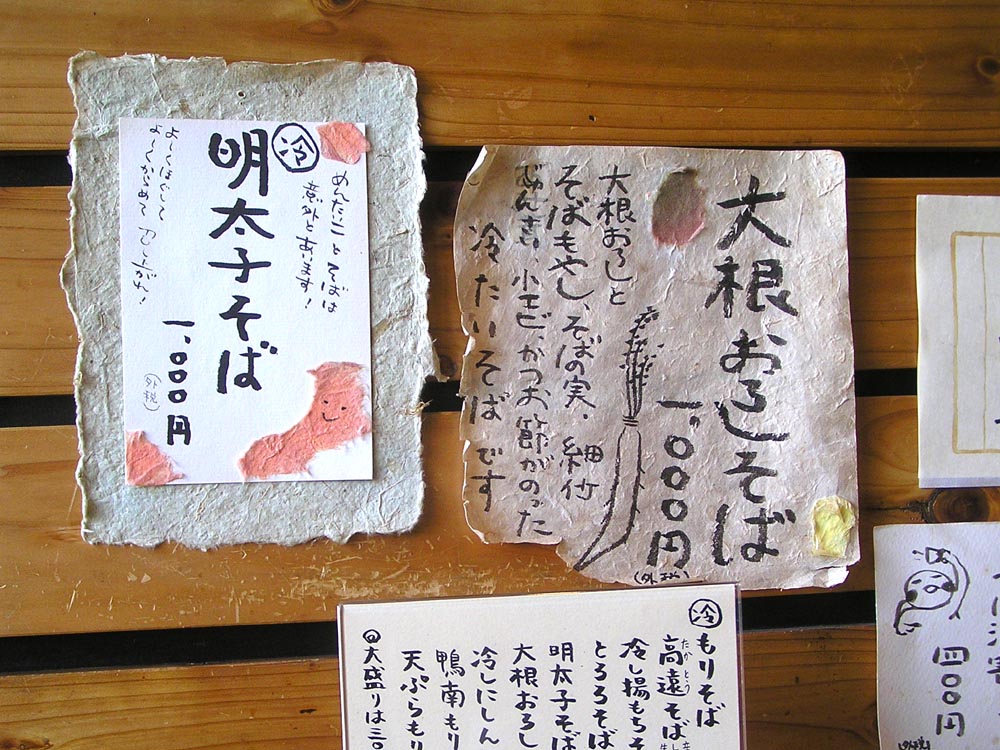 冷
めんたいこ と そばは
意外とあいます！
明太子そば
一、〇〇〇円
(外税)
よ〜くほぐして
よ〜くからめて めしあがれ！
大根おろしそば
一、〇〇〇円
(外税)
大根おろしと
そばもやし、そばの実、細竹
小エビ、かつお節がのった
冷たいそばです
冷
もりそば
高遠そば
たかとう
冷し揚もち
とろろそば
明太子そば
大根おろし
冷しにしん
鴨南もり
天ぷらもり
大盛りは三〇
四〇〇円
(外税)